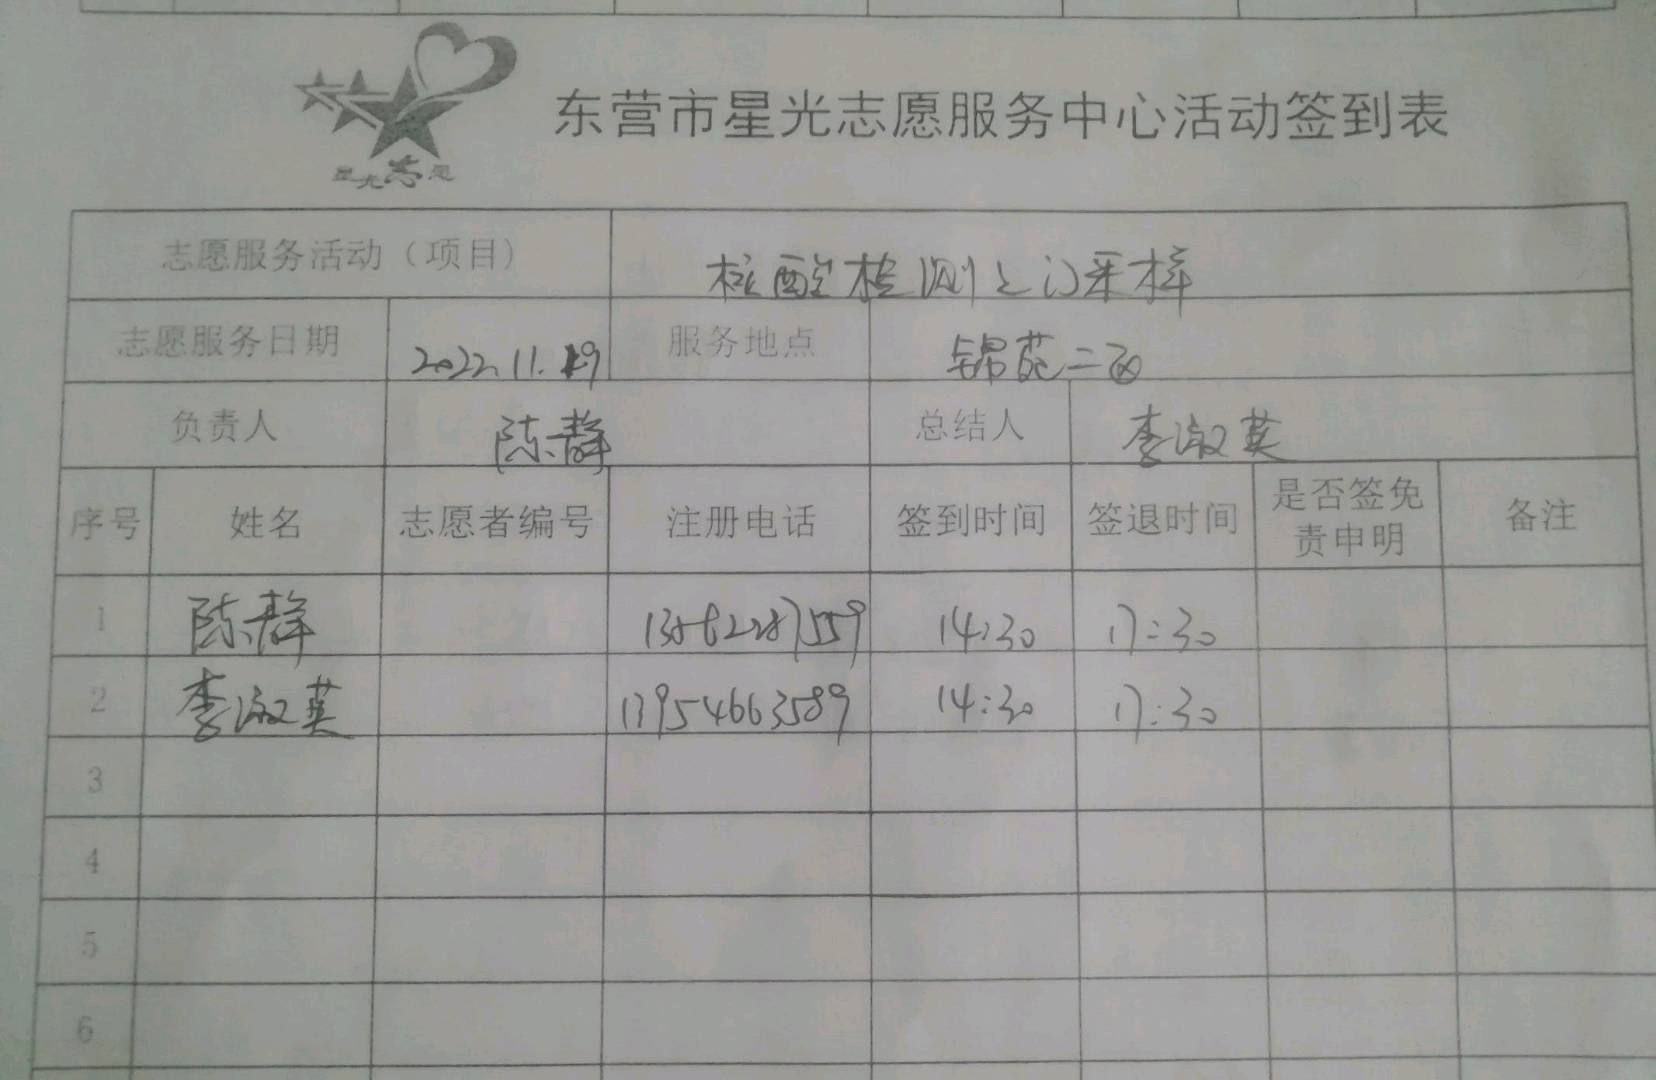 星光志愿
东营市星光志愿服务中心活动签到表
志愿服务活动（项目） 核酸检测上门采样
志愿服务日期 2022.11.19 服务地点 锦苑二区
负责人 陈静 总结人 李淑英
序号 姓名 志愿者编号 注册电话 签到时间 签退时间 是否签免责申明 备注
1 陈静 14:30 17:30
2 李淑英 13954663589 14:30 17:30
3
4
5
6